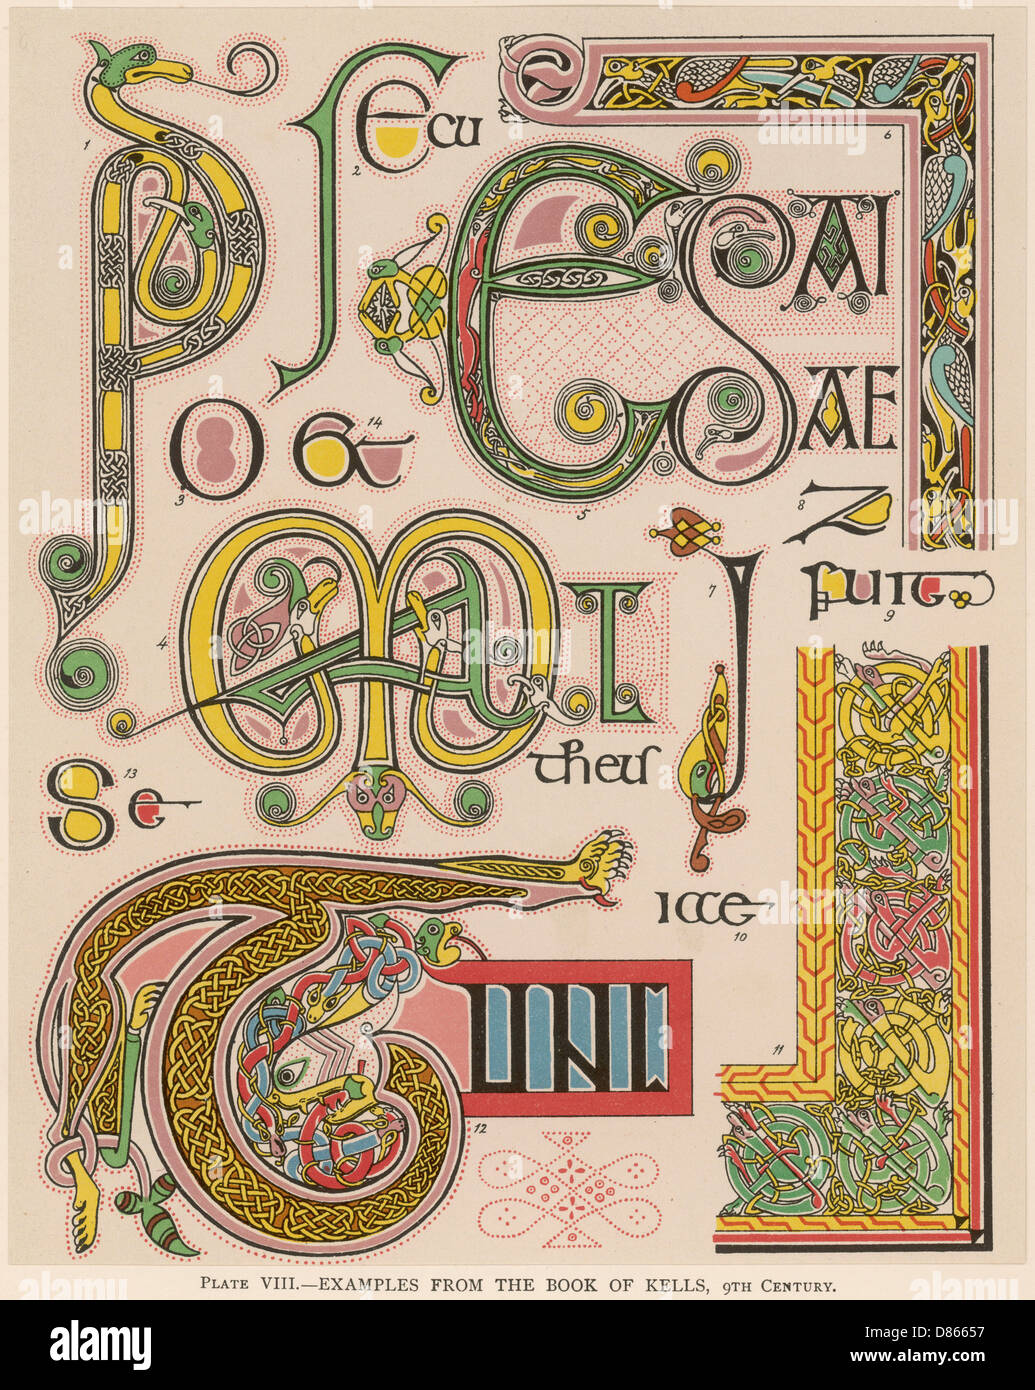 1
P
2
fecu
6
E
SAI
SAE
3
O
14
6a
5
8
Z
7
J
puit
9
4
MI
theus
13
Se
icce
10
11
TUNC
12
PLATE VIII.—EXAMPLES FROM THE BOOK OF KELLS, 9TH CENTURY.
alamy
Image ID: D86657
www.alamy.com